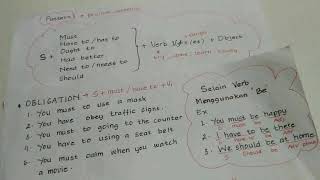 (Pattern) + positive sentence
Must
Have to / has to
Ought to
S + Had better + Verb 1 + Object
Need to / needs to
Should
OBLIGATION → S + must / have to + V1
1. You must to use a mask
2. You have obey traffic signs.
3. You must to going to the counter
4. You have to using a seat belt
5. You must calm when you watch
a movie.
Selain Verb,
Menggunakan "Be"
Ex
1. You must be happy
2. I have to be there
3. We should be at home
S should be